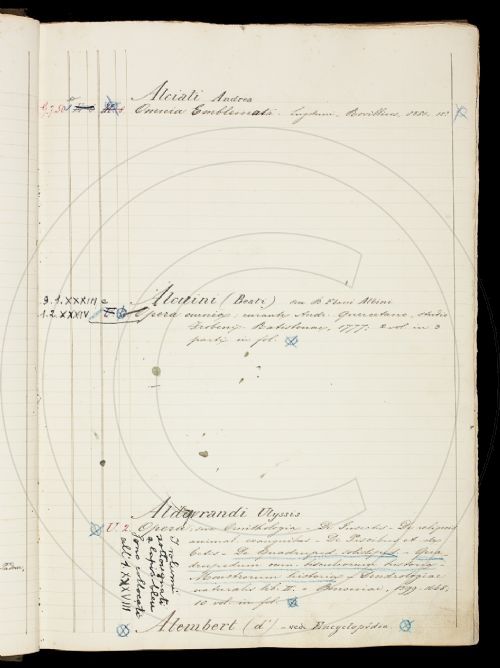 Alciati Andrea
Omnia Emblemata. Lugduni. 
Alcuini (Beati) seu B. Flacci Albini
9. 1. XXXIII e
1. 2. XXXIV Opera omnia; curante And. Quercetano, studio
Frobenii. Ratisbonae, 1777. 2 vol. in 3
partes in fol.
Aldovrandi Ulyssis
U. 2. Opera, sive Ornithologia - De Insectis - De reliquis
animal. exanguibus - De Piscibus et de
Cetis - De Quadruped. solidiped. - Qua
drupedum omn. bisulcorum historia -
Monstrorum historia - Dendrologiae
naturalis lib. II. - Bononiae, 1599-1668.
10 vol. in fol.
I volumi
sottosegnati
a lapis bleu
sono collocati
all' 1. XXXVIII
Alembert (d') - vedi Encyclopédia